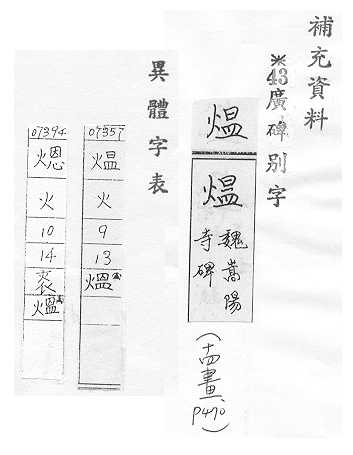 補充資料
※43廣碑別字
煴
煴
魏嵩陽
寺碑
(十四畫、P470)
異體字表
07357
煴
火
9
13
熅
07394
煾
火
10
14
熅